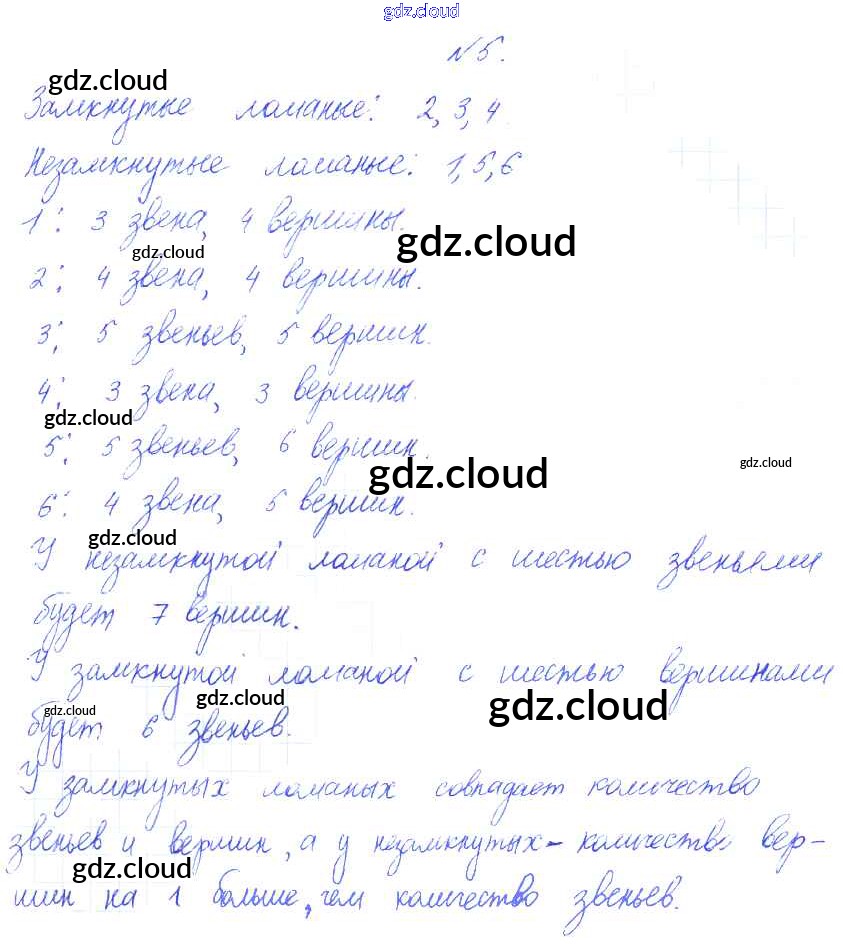 gdz.cloud
№5.
gdz.cloud
Замкнутые ломаные: 2, 3, 4.
Незамкнутые ломаные: 1, 5, 6
1: 3 звена, 4 вершины.
gdz.cloud
gdz.cloud
2: 4 звена, 4 вершины.
3: 5 звеньев, 5 вершин.
4: 3 звена, 3 вершины.
gdz.cloud
5: 5 звеньев, 6 вершин.
gdz.cloud
gdz.cloud
6: 4 звена, 5 вершин.
gdz.cloud
У незамкнутой ломаной с шестью звеньями
будет 7 вершин.
У замкнутой ломаной с шестью вершинами
gdz.cloud
gdz.cloud
gdz.cloud
будет 6 звеньев.
У замкнутых ломаных совпадает количество
звеньев и вершин, а у незамкнутых - количество вер-
gdz.cloud
шин на 1 больше, чем количество звеньев.